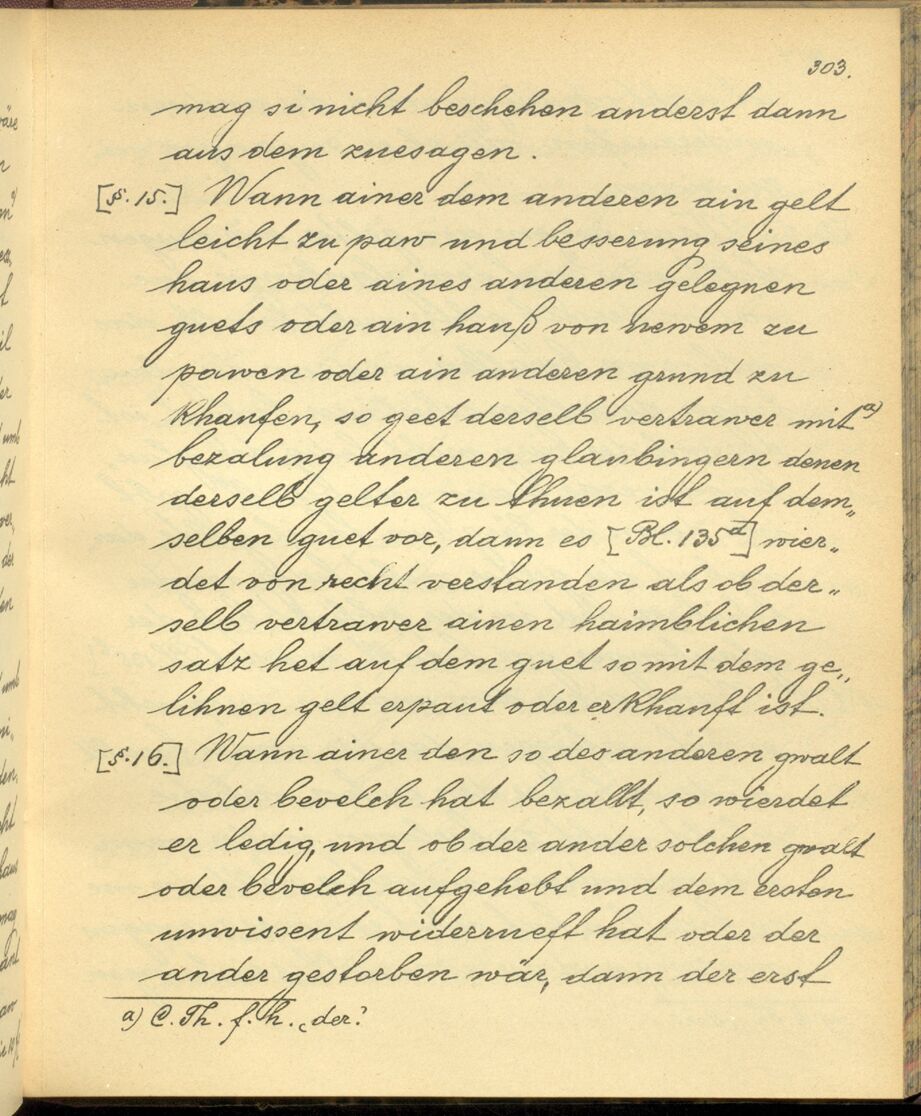 303.
mag si nicht beschehen anderst dann
aus dem zuesagen.
[§. 15.] Wann ainer dem anderen ain gelt
leicht zu paw und besserung seines
haus oder aines anderen gelegnen
guets oder ain hauß von newem zu
pawen oder ain anderen grund zu
khaufen, so geet derselb vertrawer mit a)
bezalung anderen glaubingern denen
derselb gelter zu thuen ist auf dem„
selben guet vor, dann es [Bl. 135a] wier„
det von recht verstanden als ob der„
selb vertrawer ainen haimblichen
satz het auf dem guet so mit dem ge„
lihnen gelt erpaut oder erkhauft ist.
[§. 16.] Wann ainer den so des anderen gwalt
oder bevelch hat bezallt, so wierdet
er ledig, und ob der ander solchen gwalt
oder bevelch aufgehebt und dem ersten
unwissent widerrueft hat oder der
ander gestorben wär, dann der erst
a) C. Th. f. h. „der.“